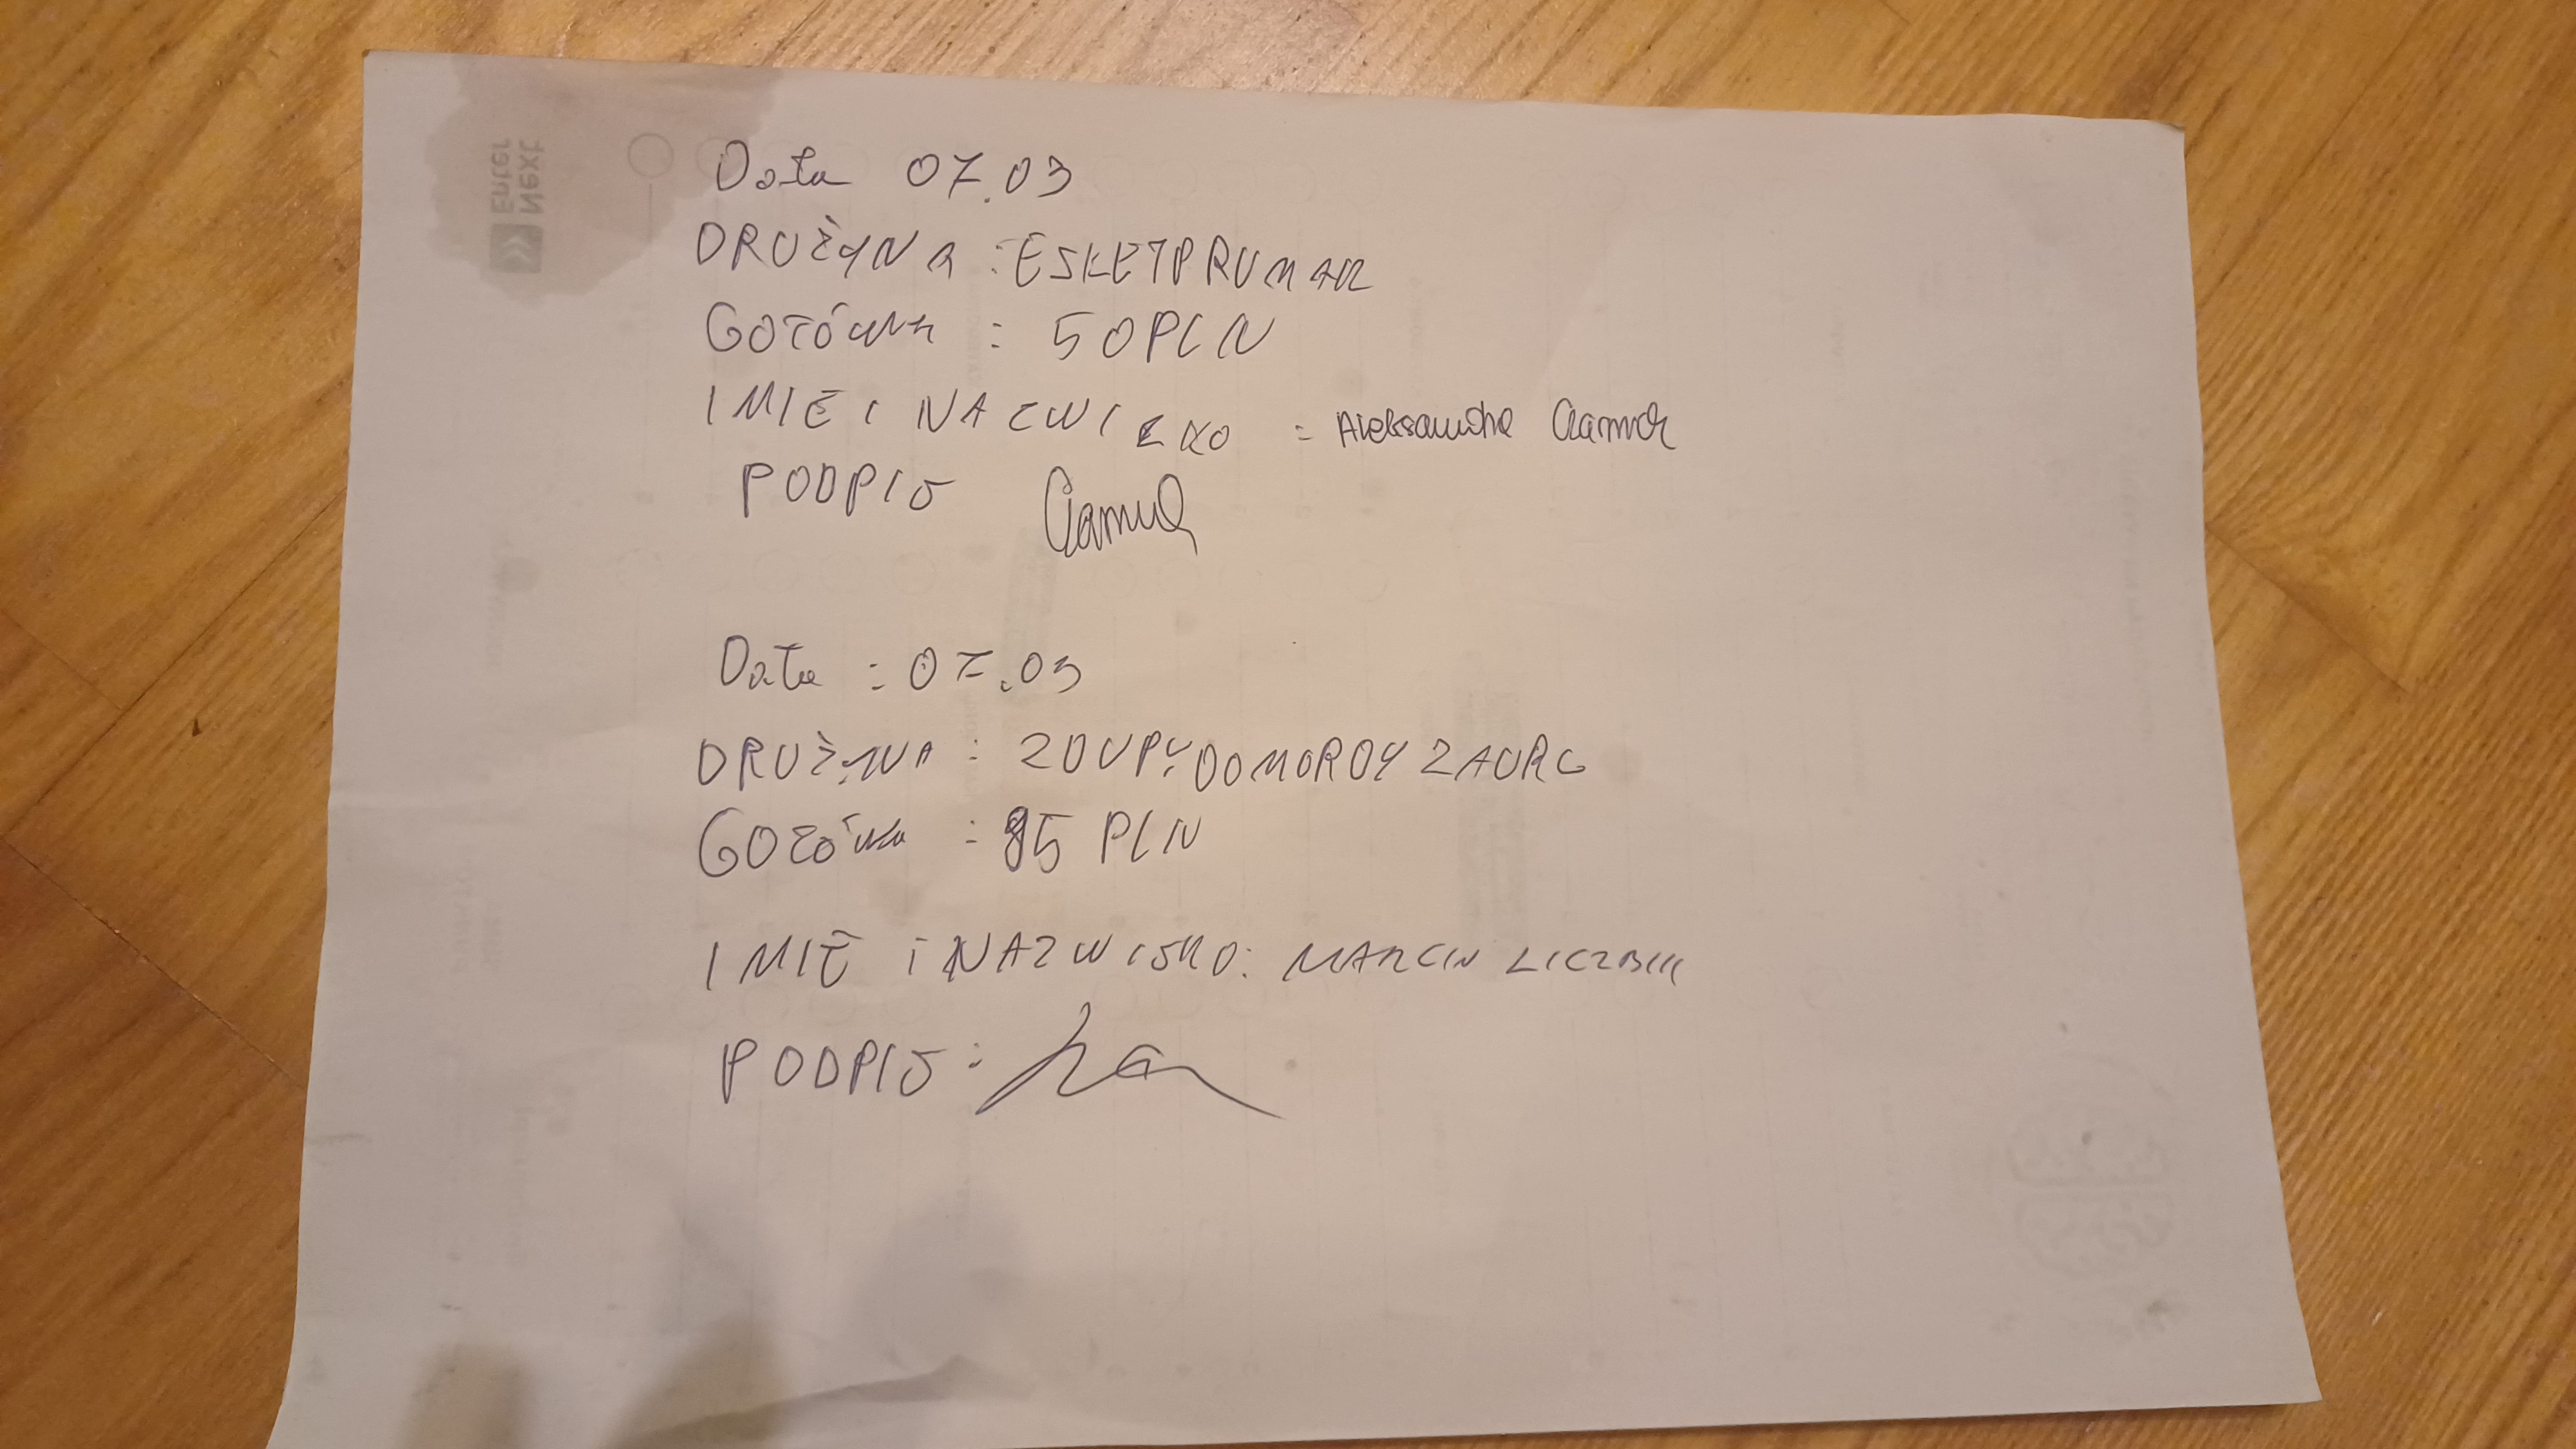 Data 07.03
DRUŻYNA : ESKETPRUMAR
GOTÓWKA : 50PLN
IMIĘ I NAZWISKO : Aleksandra
PODPIS
Data : 07.03
DRUŻYNA : ZDUPYDOMORDYZAURG
GOTÓWKA : 95 PLN
IMIĘ i NAZWISKO: MARCIN
PODPIS :
Enter
Next